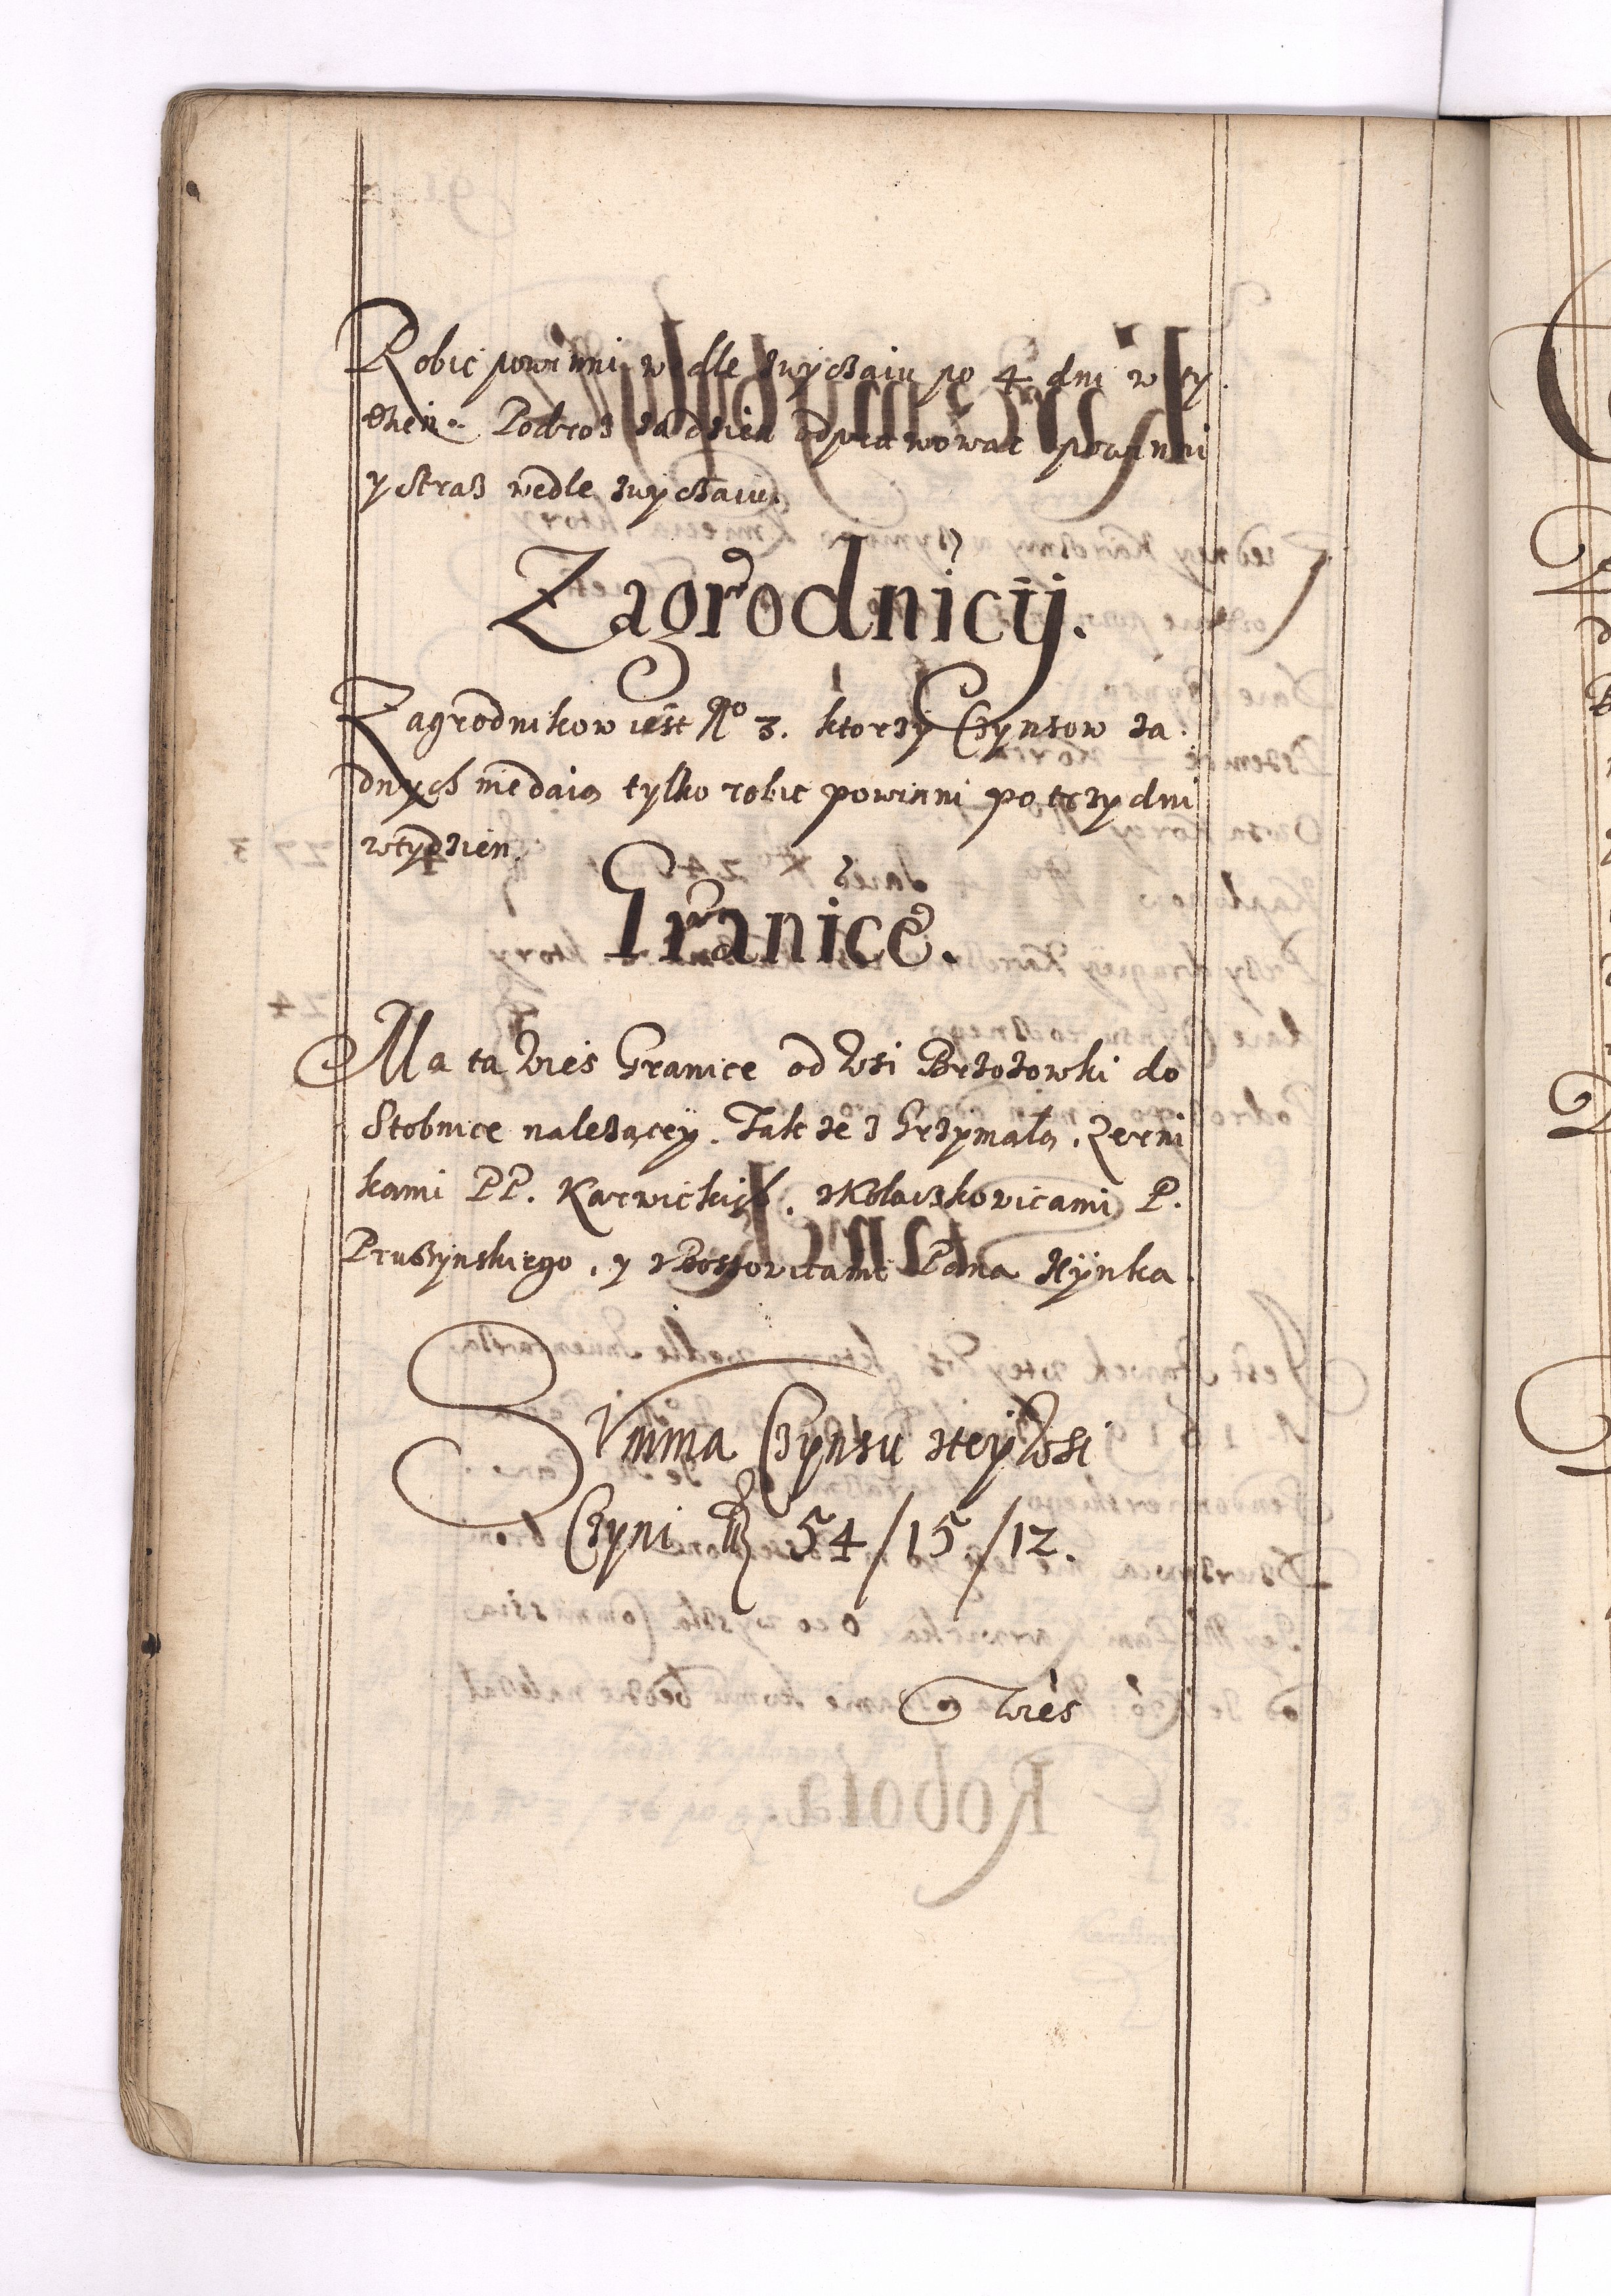 Robic powinni wedle zwyczaiu po 4 dni w ty
dzień. Podroz za dzien odprawowac powinni
y straz wedle zwyczaiu.
Zagrodnicÿ.
Zagrodnikow iest No 3. ktorzÿ Czynszow za
dnych nie daią tylko robic powinni po trzy dni
w tydzien.
Granice.
Ma ta Wieś Granice od Wsi Brzozowki do
Stobnice nalezącey. Tak ze z Grzymałą, Zerni
kami PP. Karwickich, z Kołaczkowicami P.
Pruszynskiego, y z Bossowicami Pana Hÿnka.
Summa Czynszu z tey Wsi
Czyni 54/15/12.
Wieś